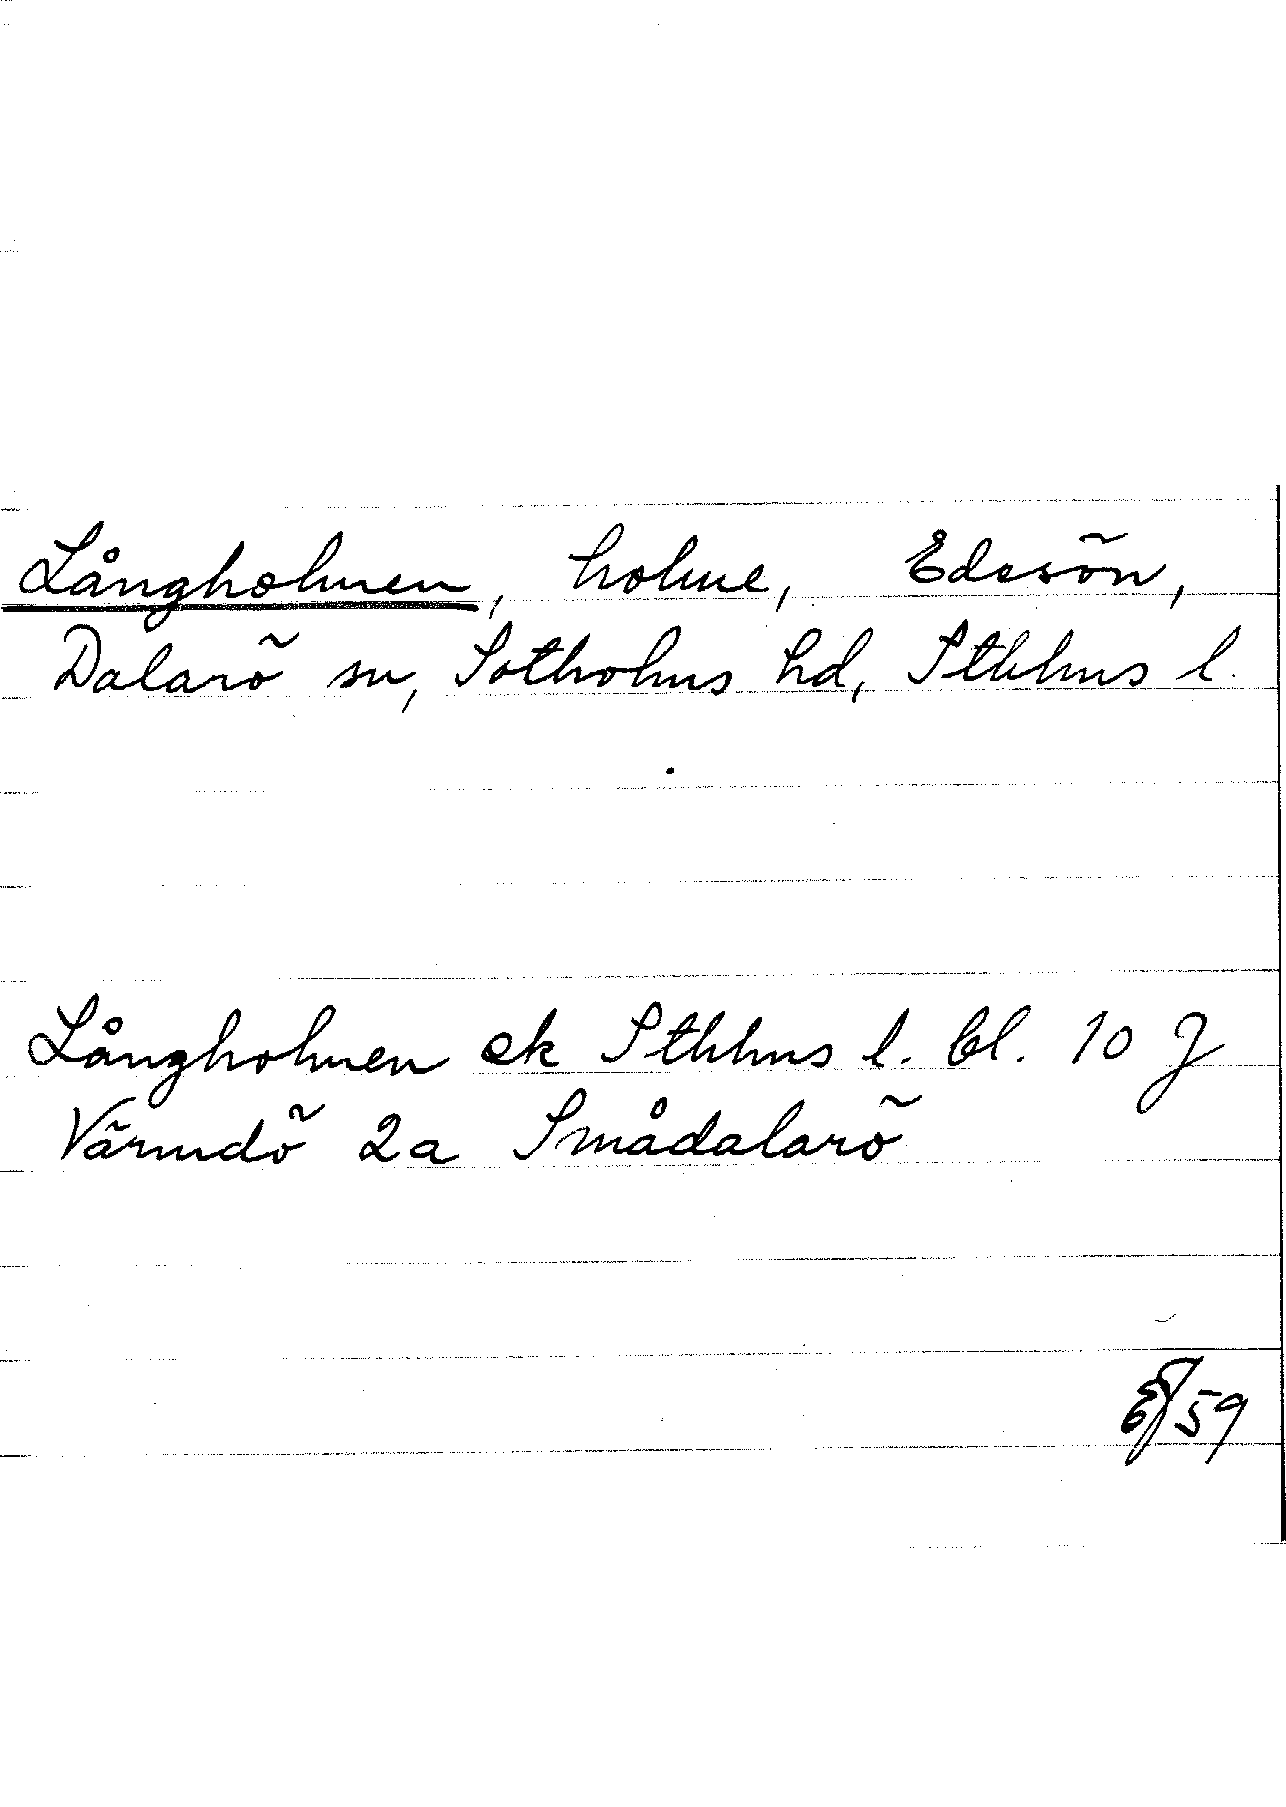 Långholmen, holme, Edesön,
Dalarö sn, Sotholms hd, Sthlms l.
Långholmen ek Sthlms l. bl. 10 J
Värmdö 2a Smådalarö
59